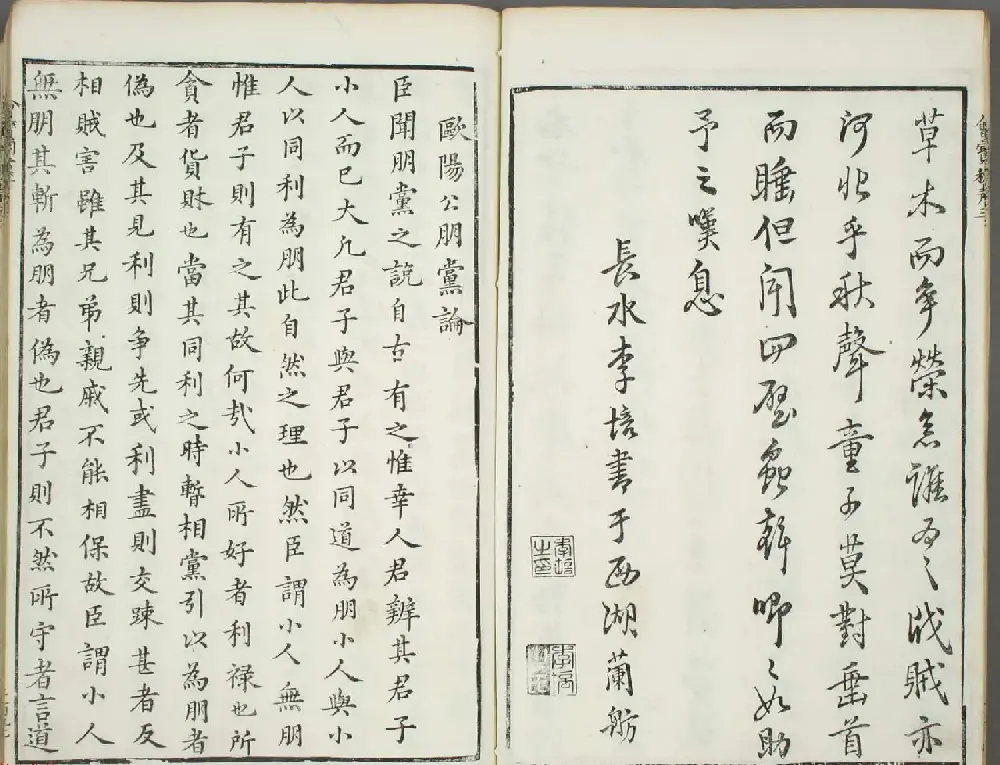 草木而爭榮念誰為之戕賊亦
何恨乎秋聲童子莫對垂首
而睡但聞四壁蟲聲唧〻如助
予之嘆息
長水李培書于西湖蘭舫
歐陽公朋黨論
臣聞朋黨之說自古有之惟幸人君辨其君子
小人而已大凡君子與君子以同道為朋小人與小
人以同利為朋此自然之理也然臣謂小人無朋
惟君子則有之其故何㢤小人所好者利祿也所
貪者貨財也當其同利之時暫相黨引以為朋者
偽也及其見利則爭先或利盡則交踈甚者反
相賊害雖其兄弟親戚不能相保故臣謂小人
無朋其暫為朋者偽也君子則不然所守者言道